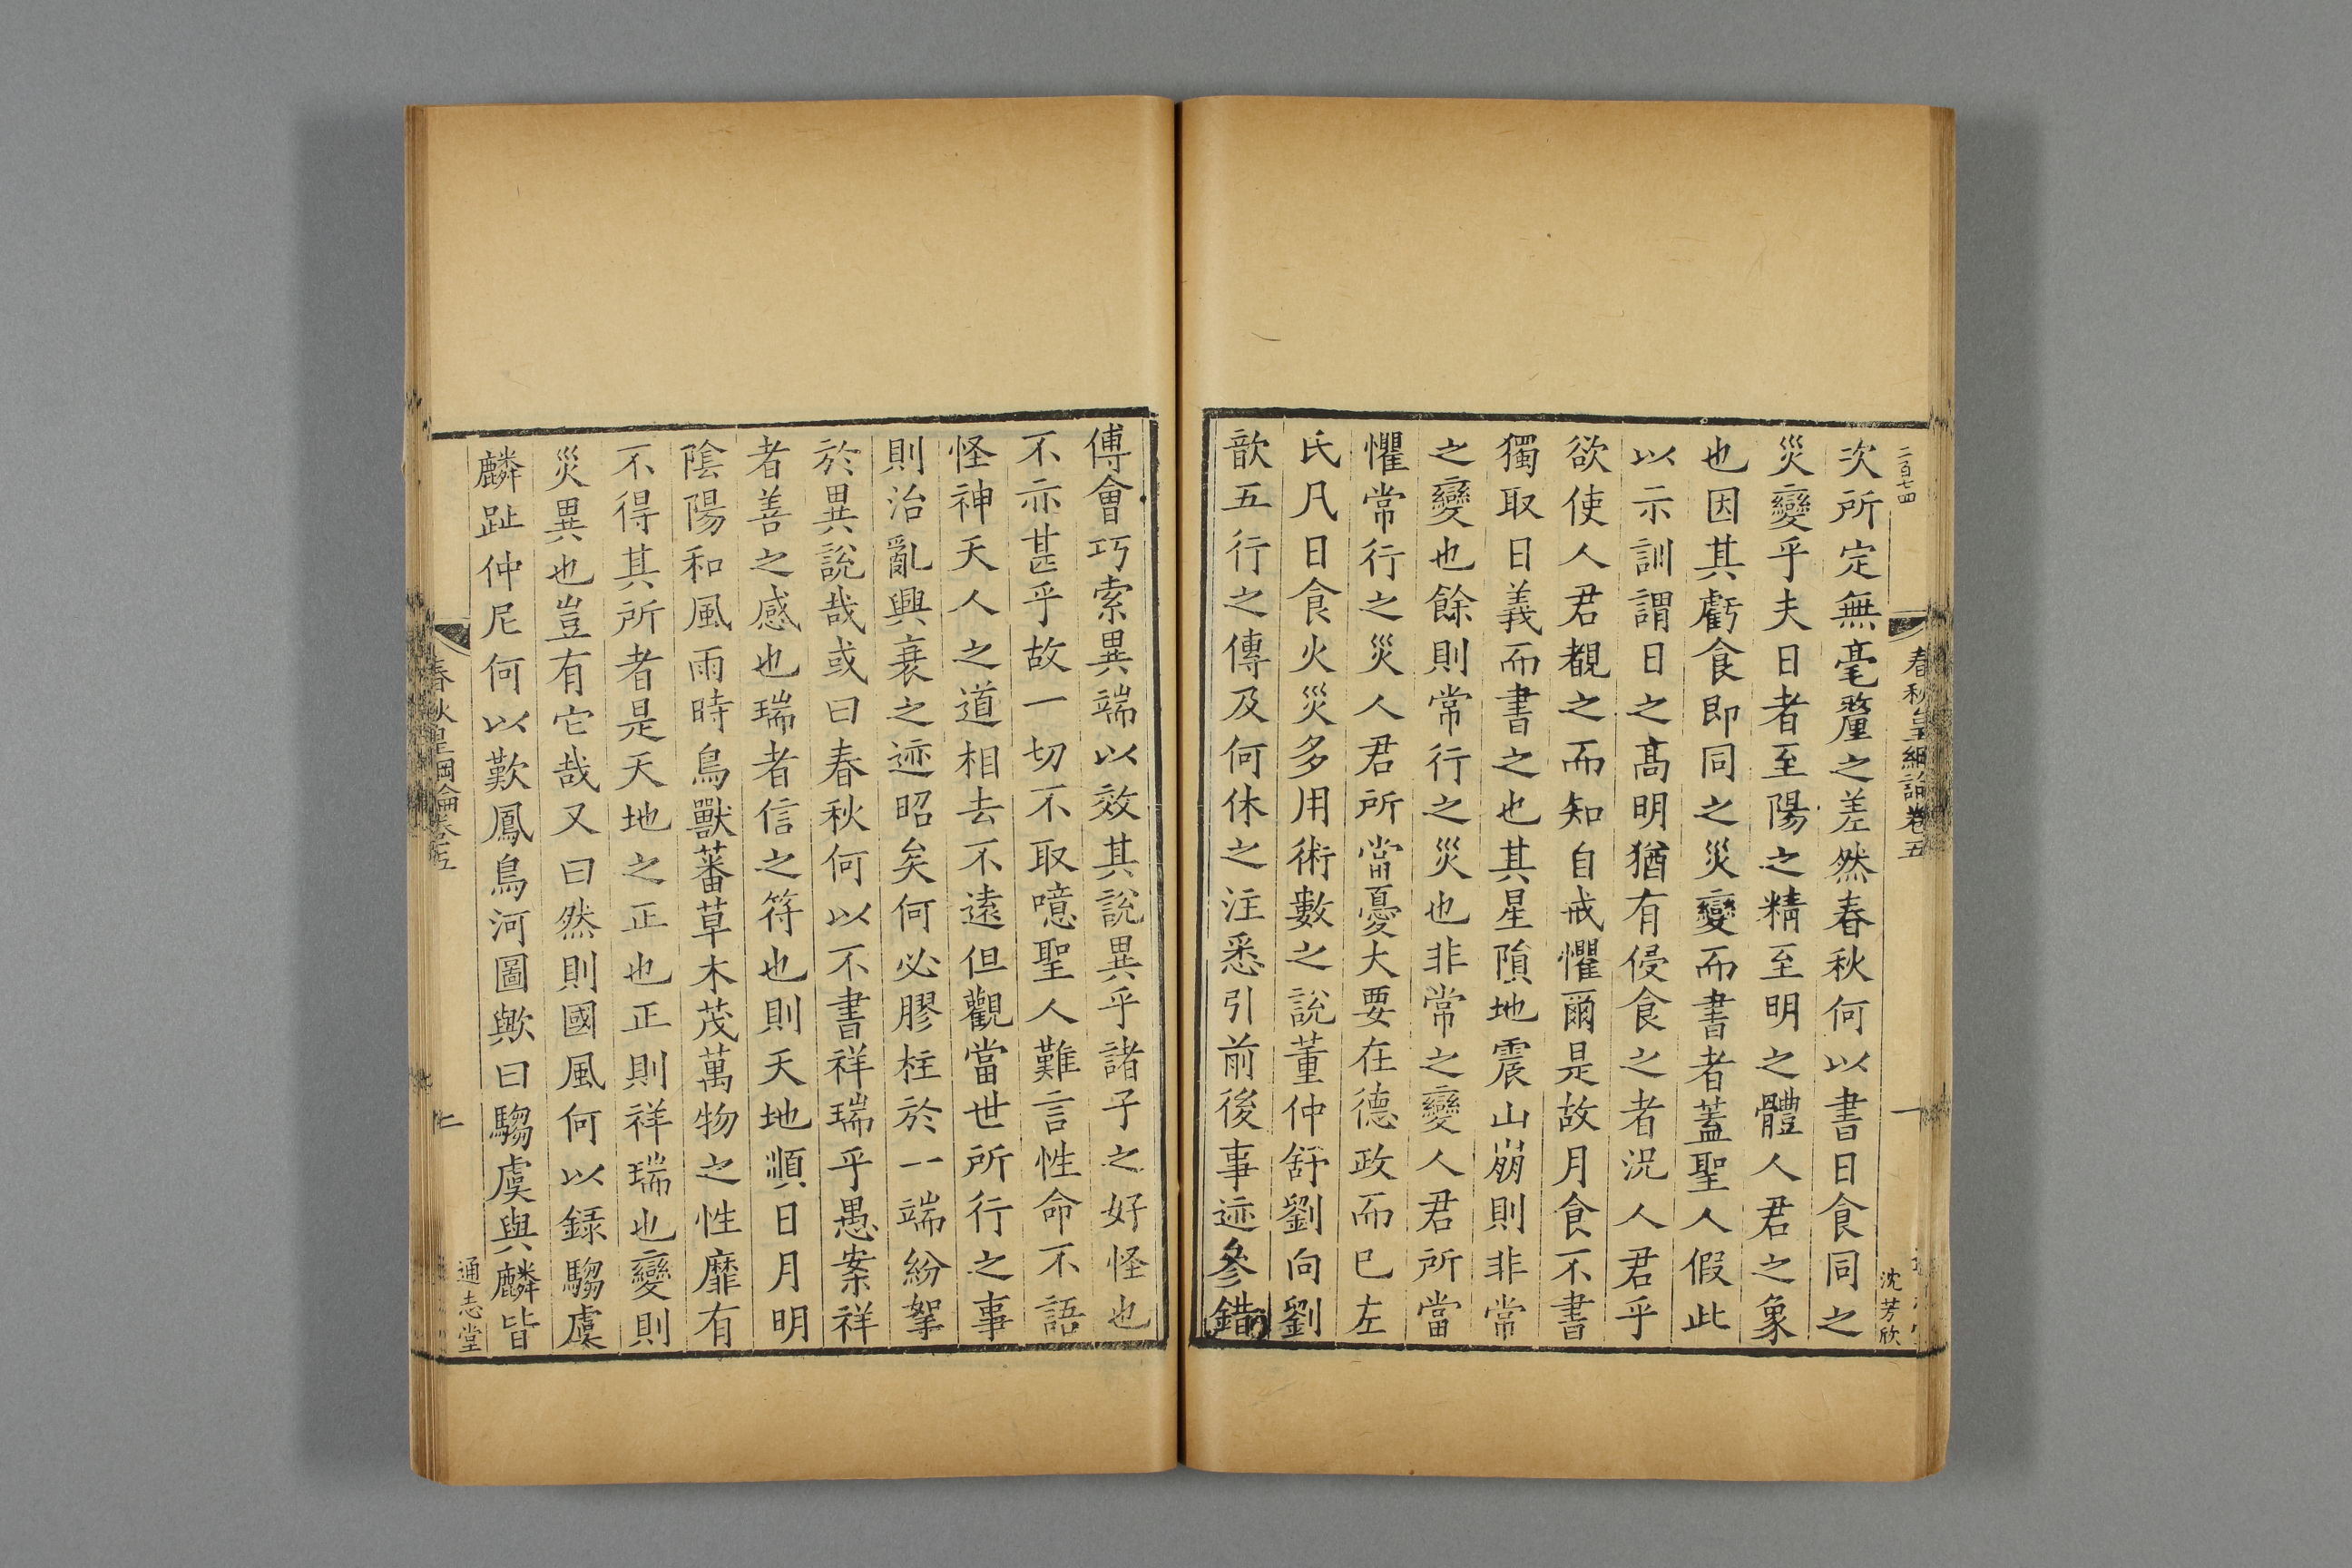 二百七四
春秋皇綱論卷五
一
沈芳欣
次所定無毫釐之差然春秋何以書日食同之
災變乎夫日者至陽之精至明之體人君之象
也因其虧食即同之災變而書者蓋聖人假此
以示訓謂日之高明猶有侵食之者況人君乎
欲使人君覩之而知自戒懼爾是故月食不書
獨取日義而書之也其星隕地震山崩則非常
之變也餘則常行之災也非常之變人君所當
懼常行之災人君所當憂大要在德政而已左
氏凡日食火災多用術數之說董仲舒劉向劉
歆五行之傳及何休之注悉引前後事迹參錯
傅會巧索異端以效其說異乎諸子之好怪也
不亦甚乎故一切不取噫聖人難言性命不語
怪神天人之道相去不遠但觀當世所行之事
則治亂興衰之迹昭矣何必膠柱於一端紛挐
於異說哉或曰春秋何以不書祥瑞乎愚案祥
者善之感也瑞者信之符也則天地順日月明
陰陽和風雨時鳥獸蕃草木茂萬物之性靡有
不得其所者是天地之正也正則祥瑞也變則
災異也豈有它哉又曰然則國風何以録騶虞
麟趾仲尼何以歎鳳鳥河圖歟曰騶虞與麟皆
春秋皇綱論卷五
二
通志堂